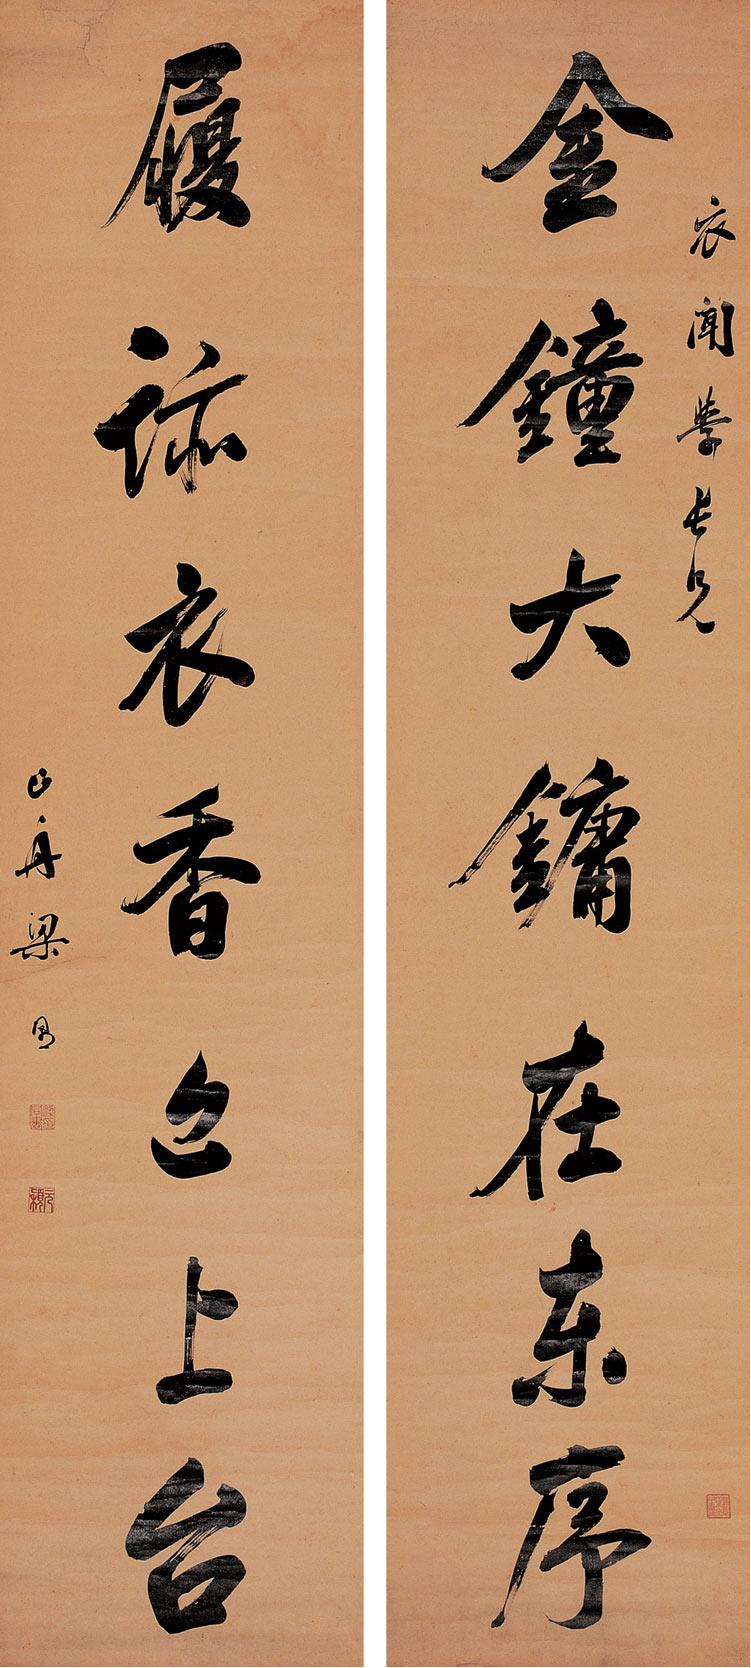 衣聞學長兄
金鐘大鏞在東序
履跡衣香近上台
山舟梁同書